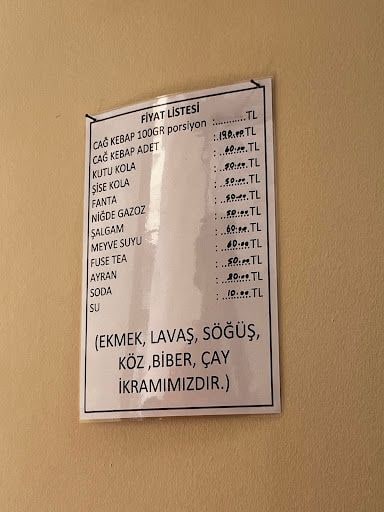 FİYAT LİSTESİ
CAĞ KEBAP 100GR porsiyon :..........TL
CAĞ KEBAP ADET : TL
KUTU KOLA : 60.00 TL
ŞİSE KOLA : 50.00 TL
FANTA : 50.00 TL
NİĞDE GAZOZ : 50.00 TL
ŞALGAM : 50.00 TL
MEYVE SUYU : 60.00 TL
FUSE TEA : 60.00 TL
AYRAN : 50.00 TL
SODA : 20.00 TL
SU : 10.00 TL
(EKMEK, LAVAŞ, SÖĞÜŞ,
KÖZ ,BİBER, ÇAY
İKRAMIMIZDIR.)